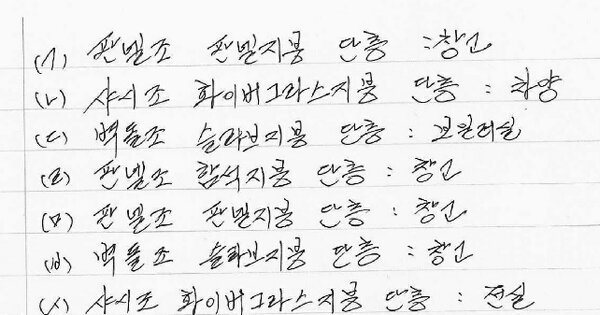 (ㄱ) 판넬조 판넬지붕 단층 : 창고
(ㄴ) 샤시조 화이버그라스지붕 단층 : 차양
(ㄷ) 벽돌조 슬라브지붕 단층 : 보일러실
(ㄹ) 판넬조 함석지붕 단층 : 창고
(ㅁ) 판넬조 판넬지붕 단층 : 창고
(ㅂ) 벽돌조 슬라브지붕 단층 : 창고
(ㅅ) 샤시조 화이버그라스지붕 단층 : 전실